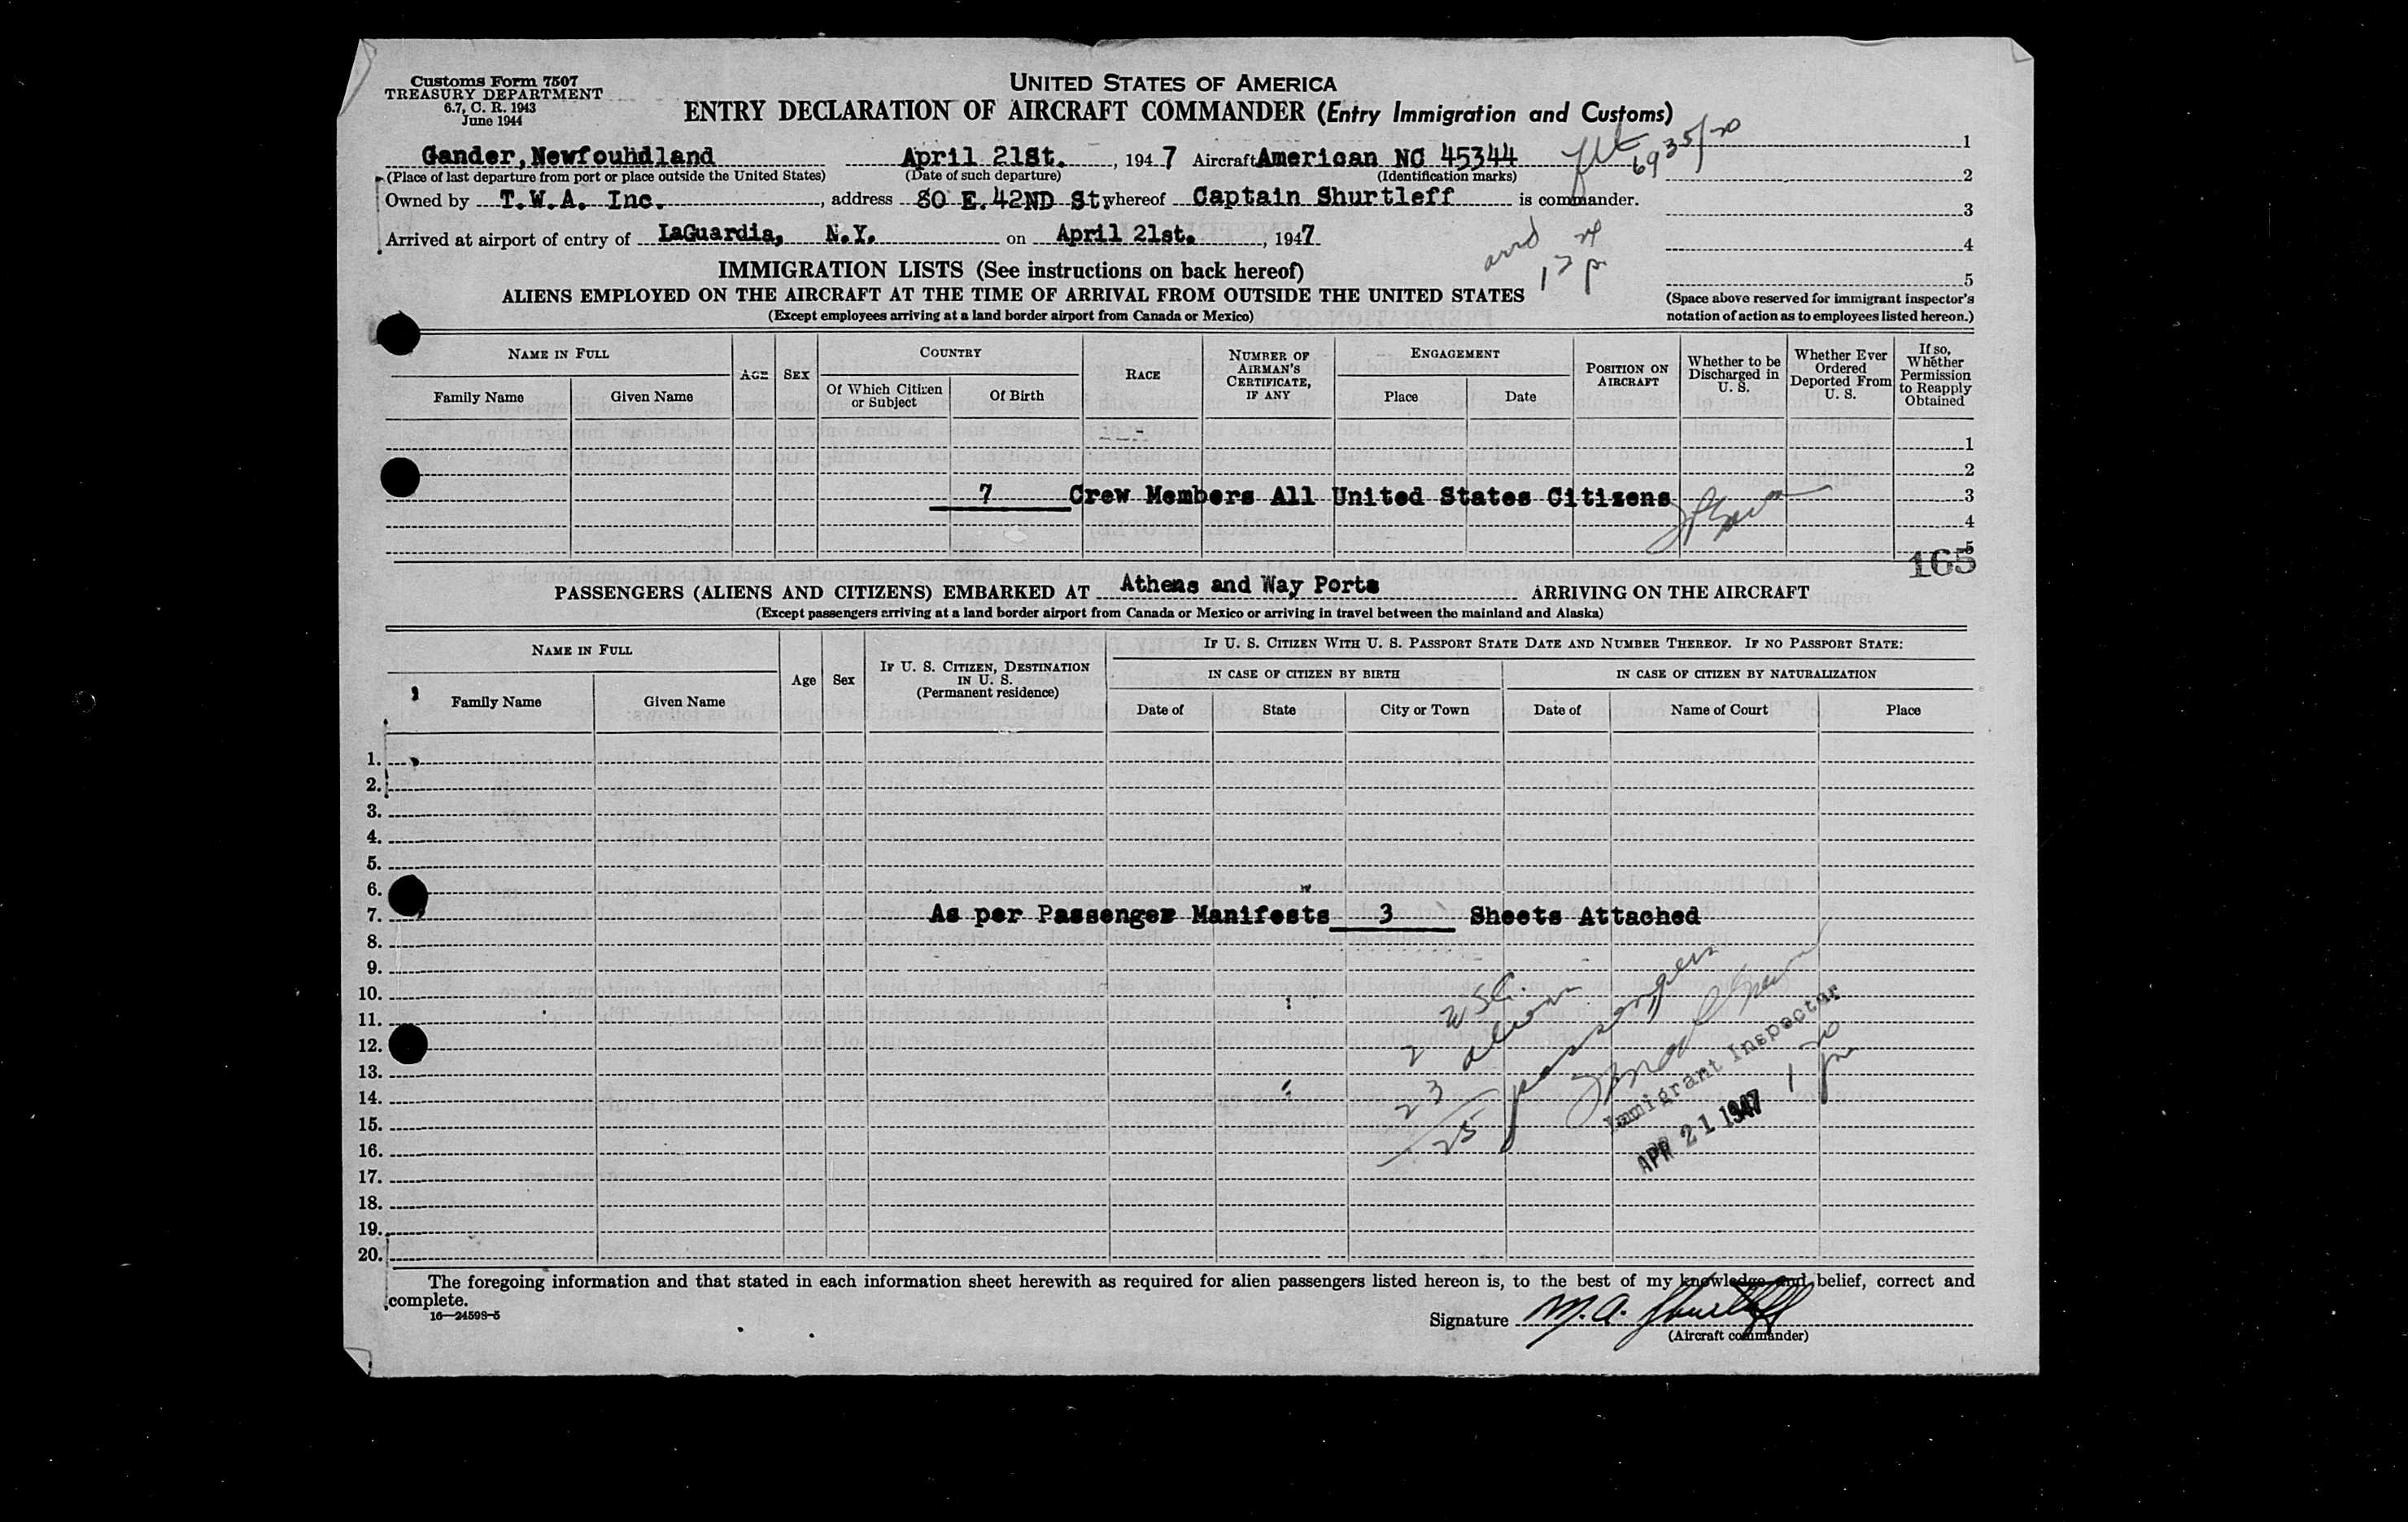 Customs Form 7507
TREASURY DEPARTMENT
6.7, C. R. 1943
June 1944
UNITED STATES OF AMERICA
ENTRY DECLARATION OF AIRCRAFT COMMANDER (Entry Immigration and Customs)
Gander, Newfouhdland April 21St., 1947 Aircraft American NC 45344
6935/20
(Place of last departure from port or place outside the United States) (Date of such departure) (Identification marks)
Owned by T.W.A. Inc., address 80 E. 42ND St, whereof Captain Shurtleff is commander.
Arrived at airport of entry of LaGuardia, N.Y. on April 21st., 1947
1
2
3
4
5
(Space above reserved for immigrant inspector's
notation of action as to employees listed hereon.)
IMMIGRATION LISTS (See instructions on back hereof)
ALIENS EMPLOYED ON THE AIRCRAFT AT THE TIME OF ARRIVAL FROM OUTSIDE THE UNITED STATES
(Except employees arriving at a land border airport from Canada or Mexico)
NAME IN FULL
Family Name
Given Name
AGE
SEX
COUNTRY
Of Which Citizen
or Subject
Of Birth
RACE
NUMBER OF
AIRMAN'S
CERTIFICATE,
IF ANY
ENGAGEMENT
Place
Date
POSITION ON
AIRCRAFT
Whether to be
Discharged in
U. S.
Whether Ever
Ordered
Deported From
U. S.
If so,
Whether
Permission
to Reapply
Obtained
1
2
7 Crew Members All United States Citizens 3
4
5
165
PASSENGERS (ALIENS AND CITIZENS) EMBARKED AT Athens and Way Ports ARRIVING ON THE AIRCRAFT
(Except passengers arriving at a land border airport from Canada or Mexico or arriving in travel between the mainland and Alaska)
NAME IN FULL
Family Name
Given Name
Age
Sex
IF U. S. CITIZEN, DESTINATION
IN U. S.
(Permanent residence)
IF U. S. CITIZEN WITH U. S. PASSPORT STATE DATE AND NUMBER THEREOF. IF NO PASSPORT STATE:
IN CASE OF CITIZEN BY BIRTH
IN CASE OF CITIZEN BY NATURALIZATION
Date of
State
City or Town
Date of
Name of Court
Place
1.
2.
3.
4.
5.
6.
7. As per Passenger Manifests 3 Sheets Attached
8.
9.
10.
11.
12.
13.
14.
15.
16.
17.
18.
19.
20.
2 USC.
23 aliens
25 passengers
Immigrant Inspector
APR 21 1947
The foregoing information and that stated in each information sheet herewith as required for alien passengers listed hereon is, to the best of my knowledge and belief, correct and
complete.
16—24598-5
Signature M. A. Shurtleff
(Aircraft commander)